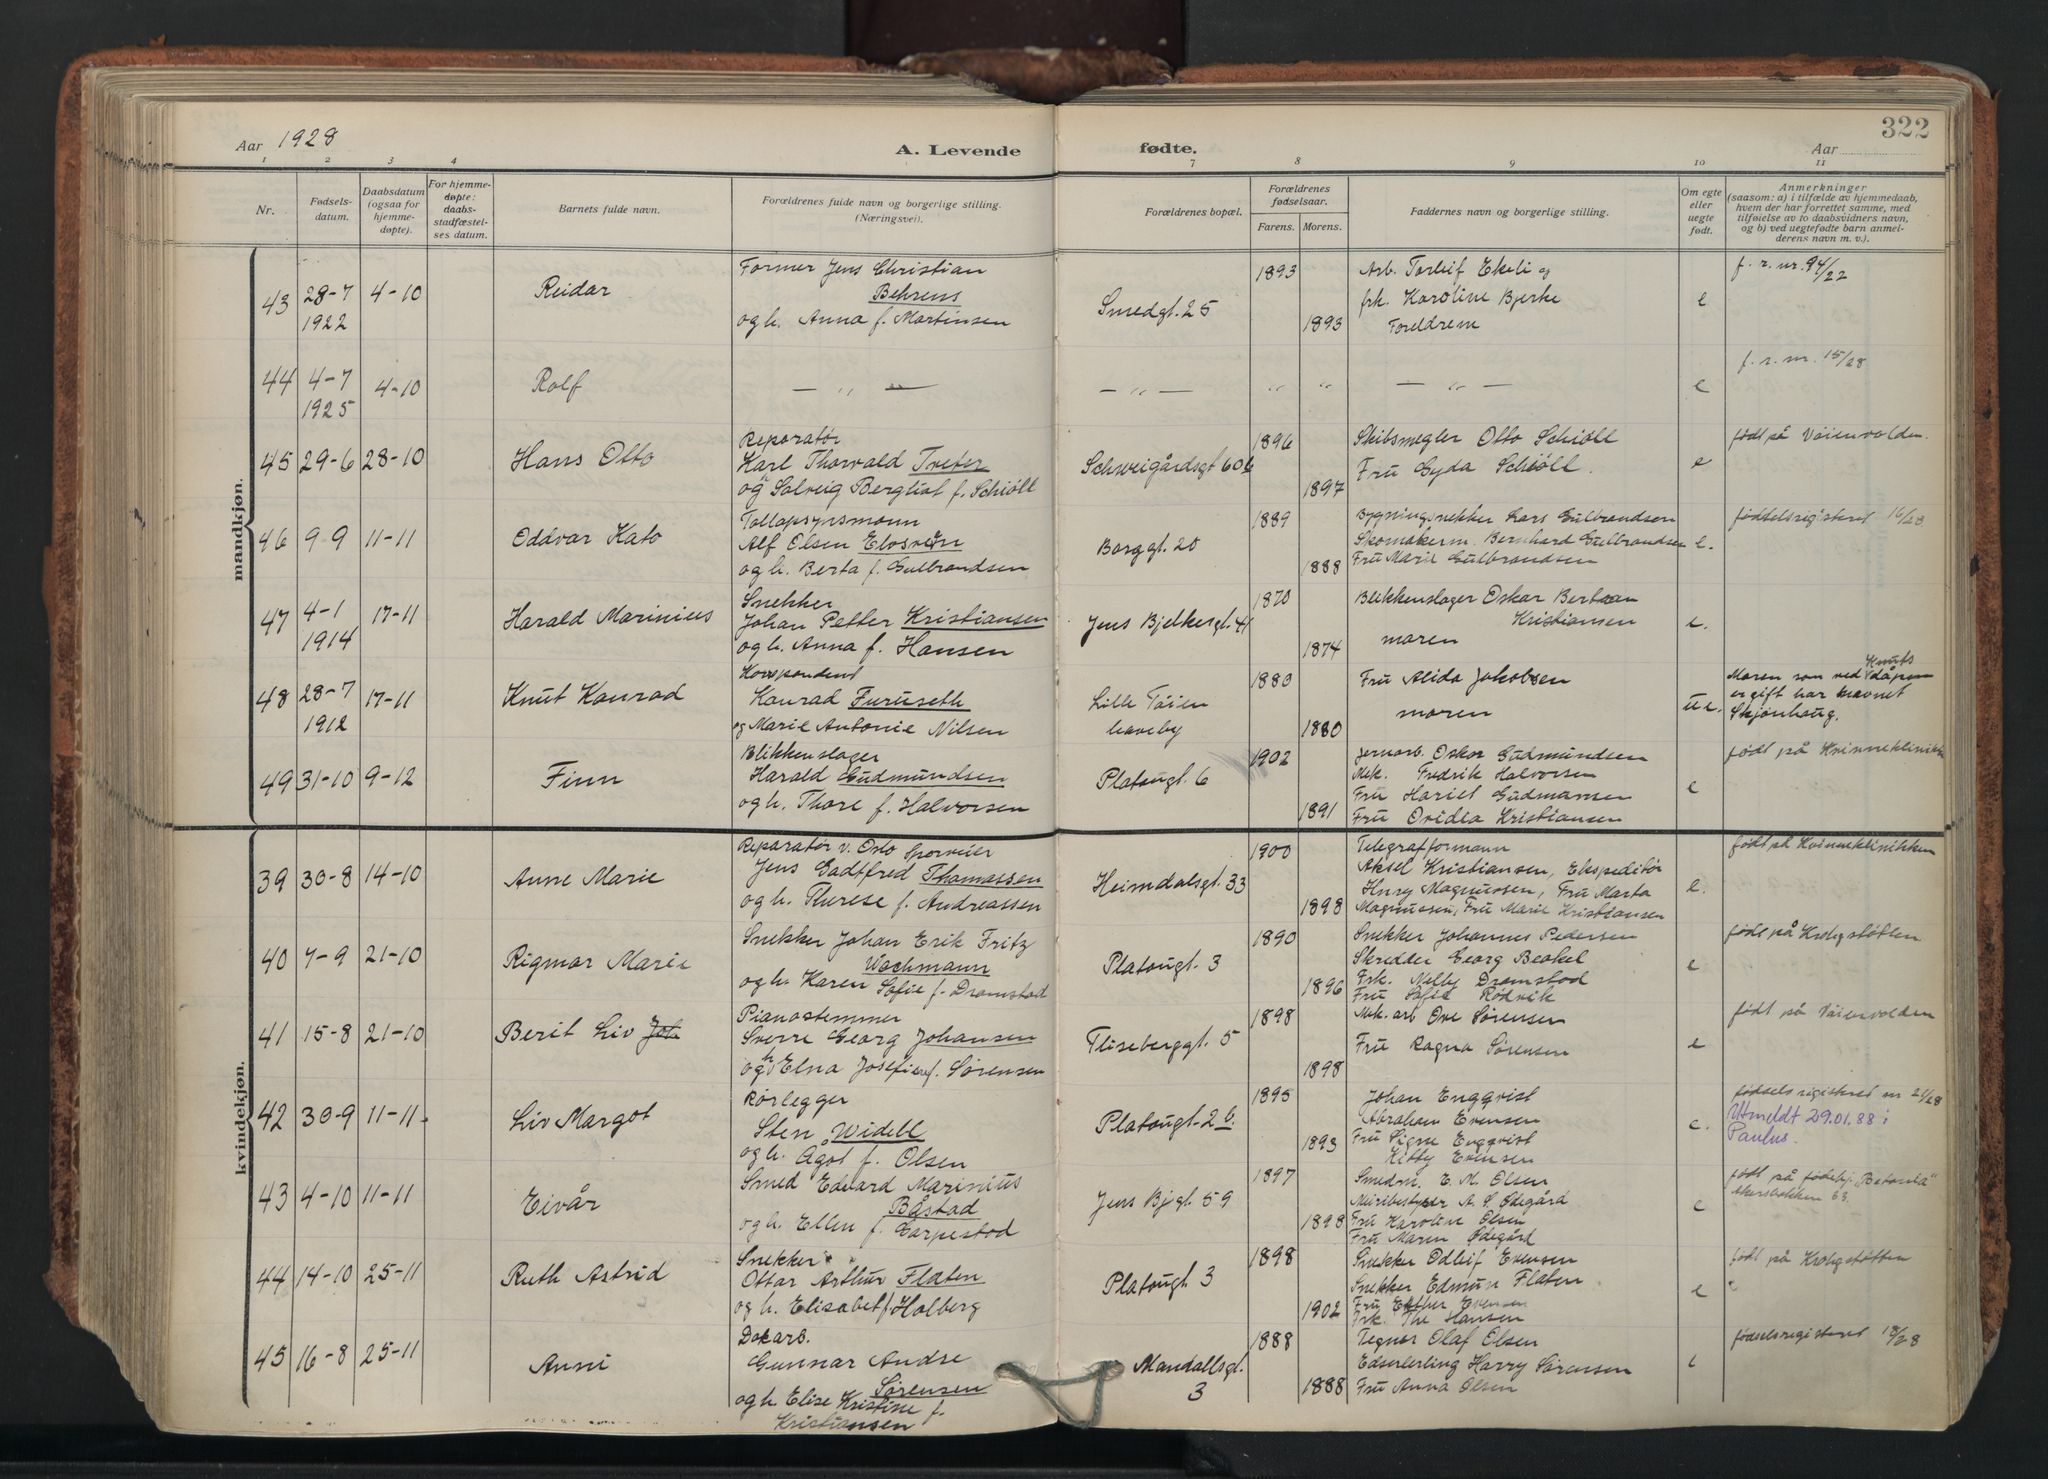 322
Aar 1928
A. Levende
fødte.
Aar
1 2 3 4 7 8 9 10 11
Nr.
Fødsels-
datum.
Daabsdatum
(ogsaa for
hjemme-
døpte).
For hjemme-
døpte:
daabs-
stadfæstel-
ses datum.
Barnets fulde navn.
Forældrenes fulde navn og borgerlige stilling.
(Næringsvei).
Forældrenes bopæl.
Forældrenes
fødselsaar.
Farens. Morens.
Faddernes navn og borgerlige stilling.
Om egte
eller
uegte
født.
Anmerkninger
(saasom: a) i tilfælde av hjemmedaab,
hvem der har forrettet samme, med
tilføielse av to daabsvidners navn,
og b) ved uegtefødte barn anmel-
derens navn m. v.).
mandkjøn.
43 28-7 4-10 Reidar
1922
Former Jens Christian
Behrens
og h. Anna f. Martinsen
Smedgt. 25
1893
1893
Arb. Torleif Ekeli og
frk. Karoline Bjerke
Foreldrene
e
f. r. nr. 94/22
44 4-7 4-10 Rolf
1925
— " —
— " —
" "
— " —
e
f. r. nr. 15/28
45 29-6 28-10 Hans Otto
Reparatør
Karl Thorvald Tveter
og h Solveig Bergliot f. Schiøll
Schweigårdsgt 60b
1896
1897
Skibsmegler Otto Schiøll
Fru Gyda Schiøll.
e
født på Våienvolden.
46 9-9 11-11 Oddvar Kato
Alf Olsen
og h. Berta f. Gulbrandsen
Borggt. 20
1889
1888
Bygningsnekker Lars Gulbrandsen
Skomakerm. Bernhard Gulbrandsen
Fru Marie Gulbrandsen
e.
fødselsregisteret 16/28
47 4-1 17-11 Harald Marinius
1914
Snekker
Johan Petter Kristiansen
og h. Anna f. Hansen
Jens Bjelkesgt. 41
1870
1874
Blikkenslager Oskar
Kristiansen
moren
e.
48 28-7 17-11 Knut Konrad
1912
Korrspondent
Konrad Furuseth
og Marie Antonie Nilsen
Lille Tøien
haveby
1880
1880
Fru Alida Jakobsen
moren
u e.
Moren som ved Knuts dåp
er gift har navnet
Skjønhaug.
49 31-10 9-12 Finn
Blikkenslager
Harald Gudmundsen
og h. Thore f. Halvorsen
Platougt. 6
1902
1891
Jernarb. Oskar Gudmundsen
Mek. Fredrik Halvorsen
Fru Hariet Gudmansen
Fru Ovidia Kristiansen
e
født på Kvinneklinikk
kvindekjøn.
39 30-8 14-10 Anne Marie
Reparatør v. Oslo Sporveier
Jens Gadtfred Thomassen
og h. Therese f. Andreassen
Heimdalsgt. 33
1900
1898
Telegrafformann
Aksel Kristiansen, Ekspeditør
Henry Magnussen, Fru Marta
Magnussen, Fru Marie Kristiansen
e.
født på Kvinneklinikken
40 7-9 21-10 Rigmor Marie
Snekker Johan Erik Fritz
Wachmann
og h. Karen Sofie f. Dramstad
Platougt. 3
1890
1896
Snekker Johannes Pedersen
Skredder Georg Beakel
Frk. Nelly Dramstad
Fru Sofie Rødvik
e
født på Krohgstøtten
41 15-8 21-10 Berit Liv
Pianostemmer
Sverre Georg Johansen
og h Elna Josefine f. Sørensen
Fliseberggt. 5
1898
1898
Mek. arb Ove Sørensen
Fru Ragna Sørensen
e
født på Våienvolden
42 30-9 11-11 Liv Margot
Rørlegger
Sten Widell
og h. Ågot f. Olsen
Platougt. 2 b.
1895
1893
Johan Engqvist
Abraham Evensen
Fru Signe Engqvist
Kitty Evensen
e.
fødselsregisteret nr 21/28
Utmeldt 29.01.88 i
Paulus.
43 4-10 11-11 Eivår
Smed Edvard Marinius
Båstad
og h. Ellen f. Garpestad
Jens Bjgt. 59
1897
1898
Smedm. E. M. Olsen
A. Ødegård
Fru Karoline Olsen
Fru Maren Ødegård
e
født på fødehj. "Betania"
Akersbakken 63.
44 14-10 25-11 Ruth Astrid
Snekker
Ottar Arthur Flaten
og h. Elisabet f. Holberg
Platougt 3
1898
1902
Snekker Odleif Evensen
Snekker Edmun Flaten
Fru Esther Evensen
Frk. The Hansen
e
født på Krohgstøtten
45 16-8 25-11 Anni
Dokarb.
Gunnar Andre
Sørensen
og h. Elise Kristine f.
Kristiansen
Mandallsgt.
3
1888
1888
Tegner Olaf Olsen
Harry Sørensen
Fru Anna Olsen
e
fødselsregisteret 18/28